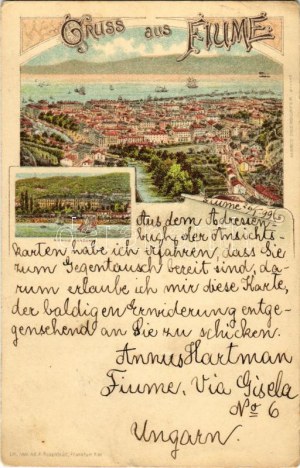 Gruss aus FIUME
Fiume
Aus dem Adressen-
buch der Ansichts-
karten, habe ich erfahren, dass Sie
zum Gegentausch bereit sind, da-
rum erlaube ich mir diese Karte,
der baldigen Erwiderung entge-
gensehend an Sie zu schicken.
Annus Hartman
Fiume, Via Gisela
No 6
Ungarn.
Rosenblatt, Frankfurt